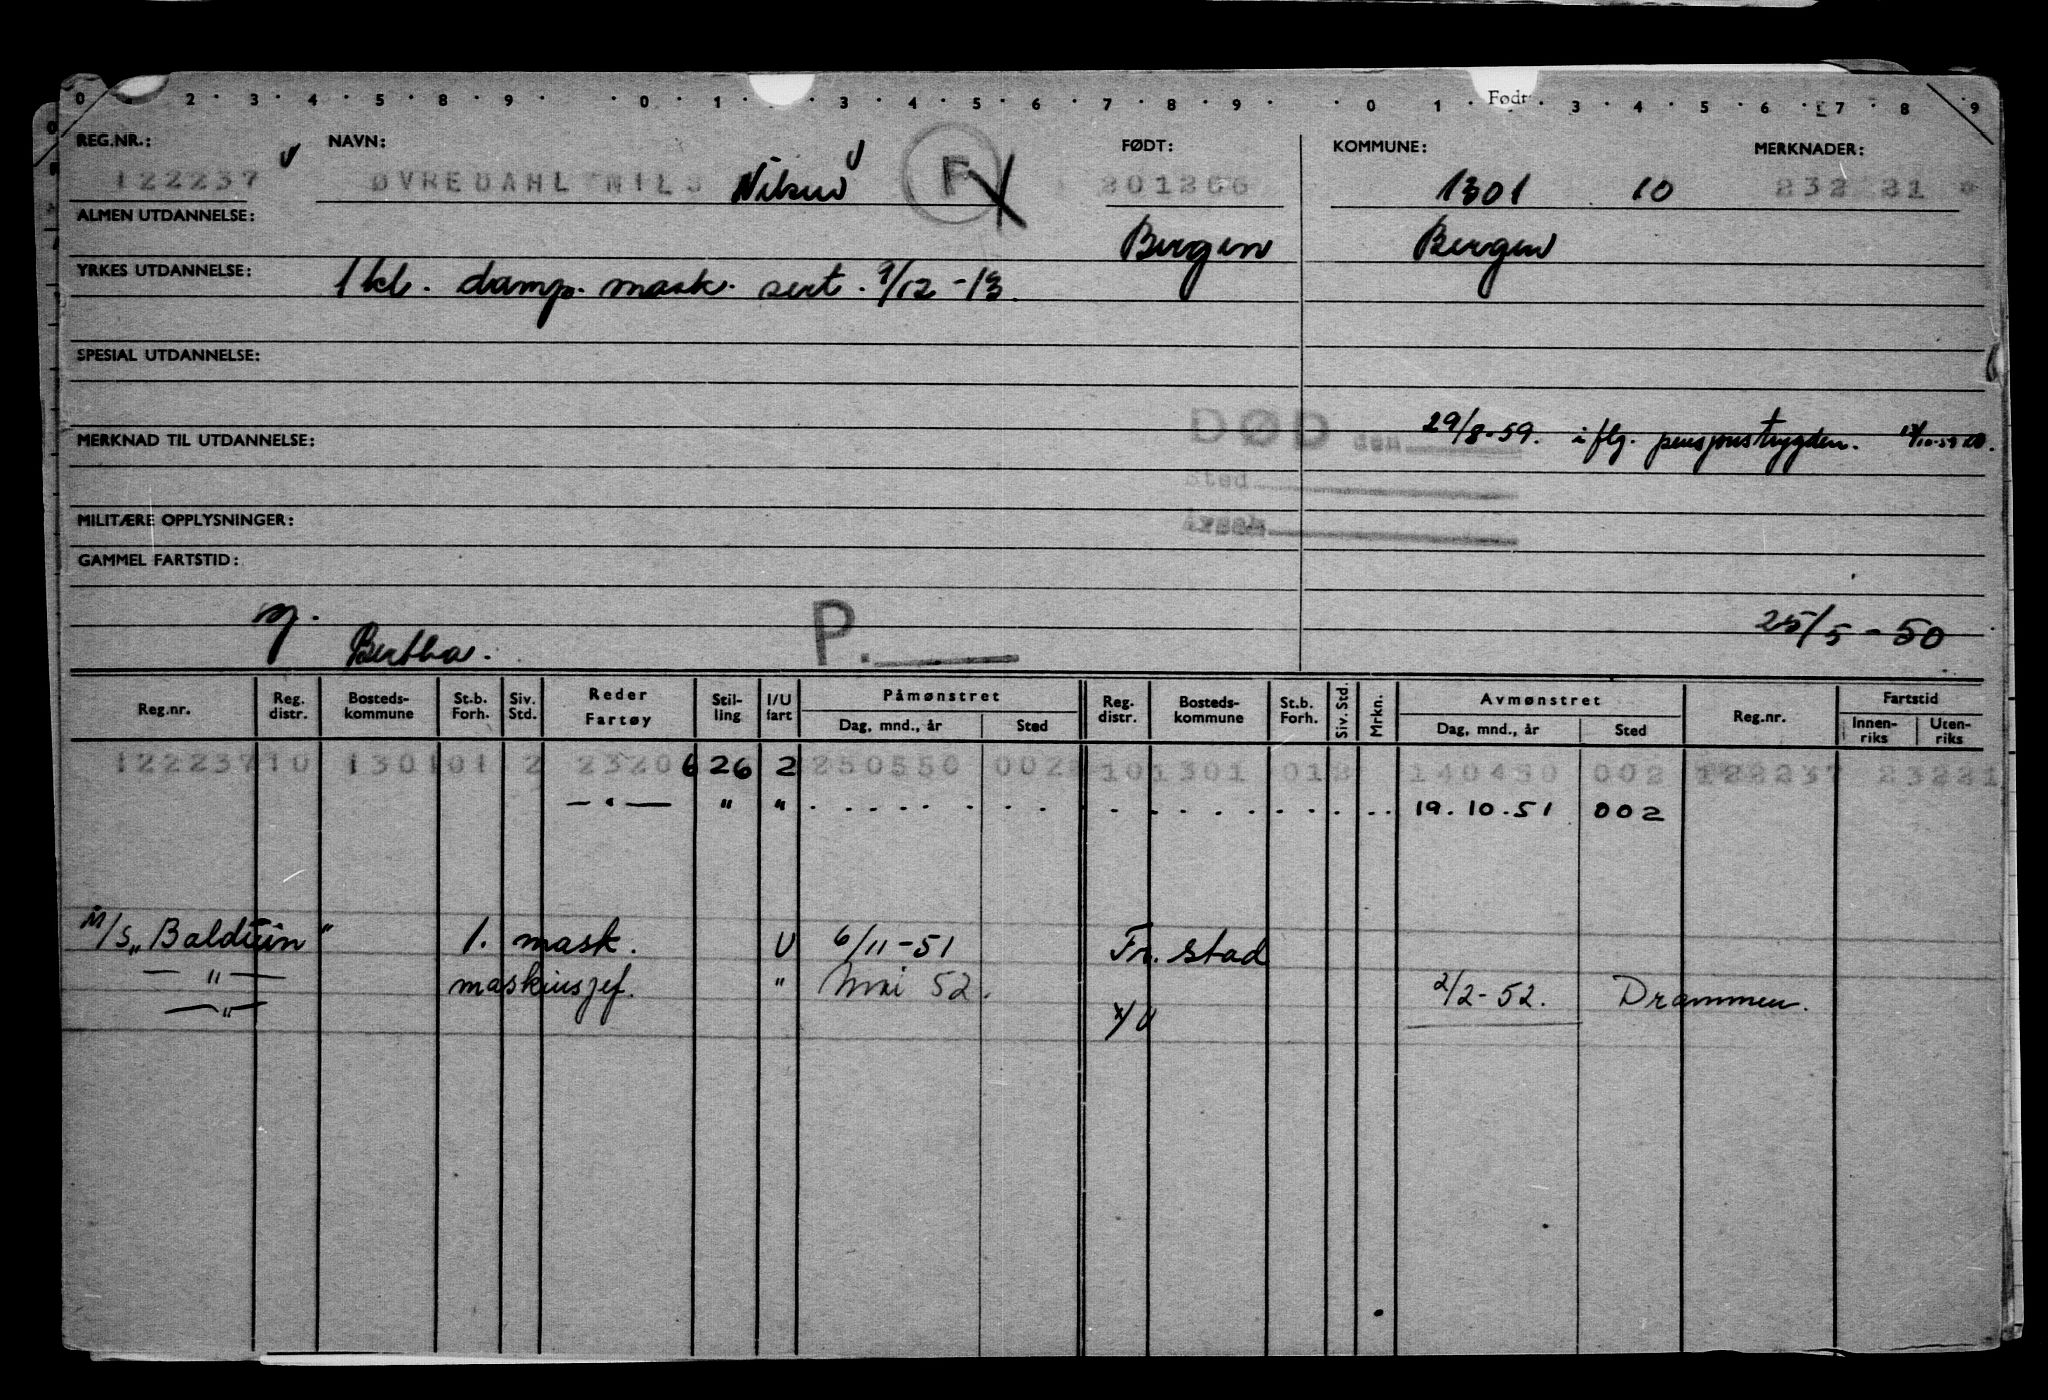 0 2 3 4 5 8 9 0 1 3 4 5 6 7 8 9 0 1 Født 3 4 5 6 7 8 9
REG.NR.: NAVN: FØDT: KOMMUNE: MERKNADER:
122237 ØVREDAHL NILS F 201266 1301 10 232 21
ALMEN UTDANNELSE: Bergen Bergen
YRKES UTDANNELSE: 1 kl. damp. mask. sert. 9/12-13.
SPESIAL UTDANNELSE:
DØD den 29/8-59. iflg. pensjonstrygden.
MERKNAD TIL UTDANNELSE:
Sted
Årsak
MILITÆRE OPPLYSNINGER:
GAMMEL FARTSTID:
g. Bertha. P. 25/5-50
Reg.nr. Reg. distr. Bosteds-kommune St.b. Forh. Siv. Std. Reder Fartøy Stil-ling I/U fart Påmønstret Dag, mnd., år Sted Reg. distr. Bosteds-kommune St.b. Forh. Siv. Std. Mrkn. Avmønstret Dag, mnd., år Sted Reg.nr. Fartstid Innen-riks Uten-riks
122237 10 1301 01 2 2320 6 26 2 250550 002 10 1301 01 3 140450 002 122237 23221
— " — " " 19.10.51 002
M/S "Balduin" 1. mask. U 6/11-51 Fr.stad
— " — maskinsjef. " Mai 52. 2/2-52. Drammen.
— " —